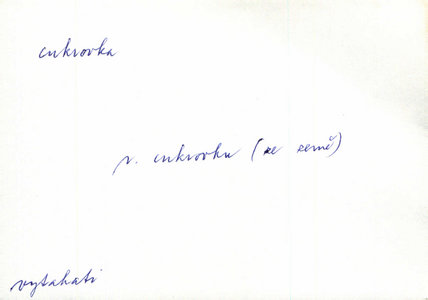 cukrovka
v. cukrovku (ze země)
vytahati